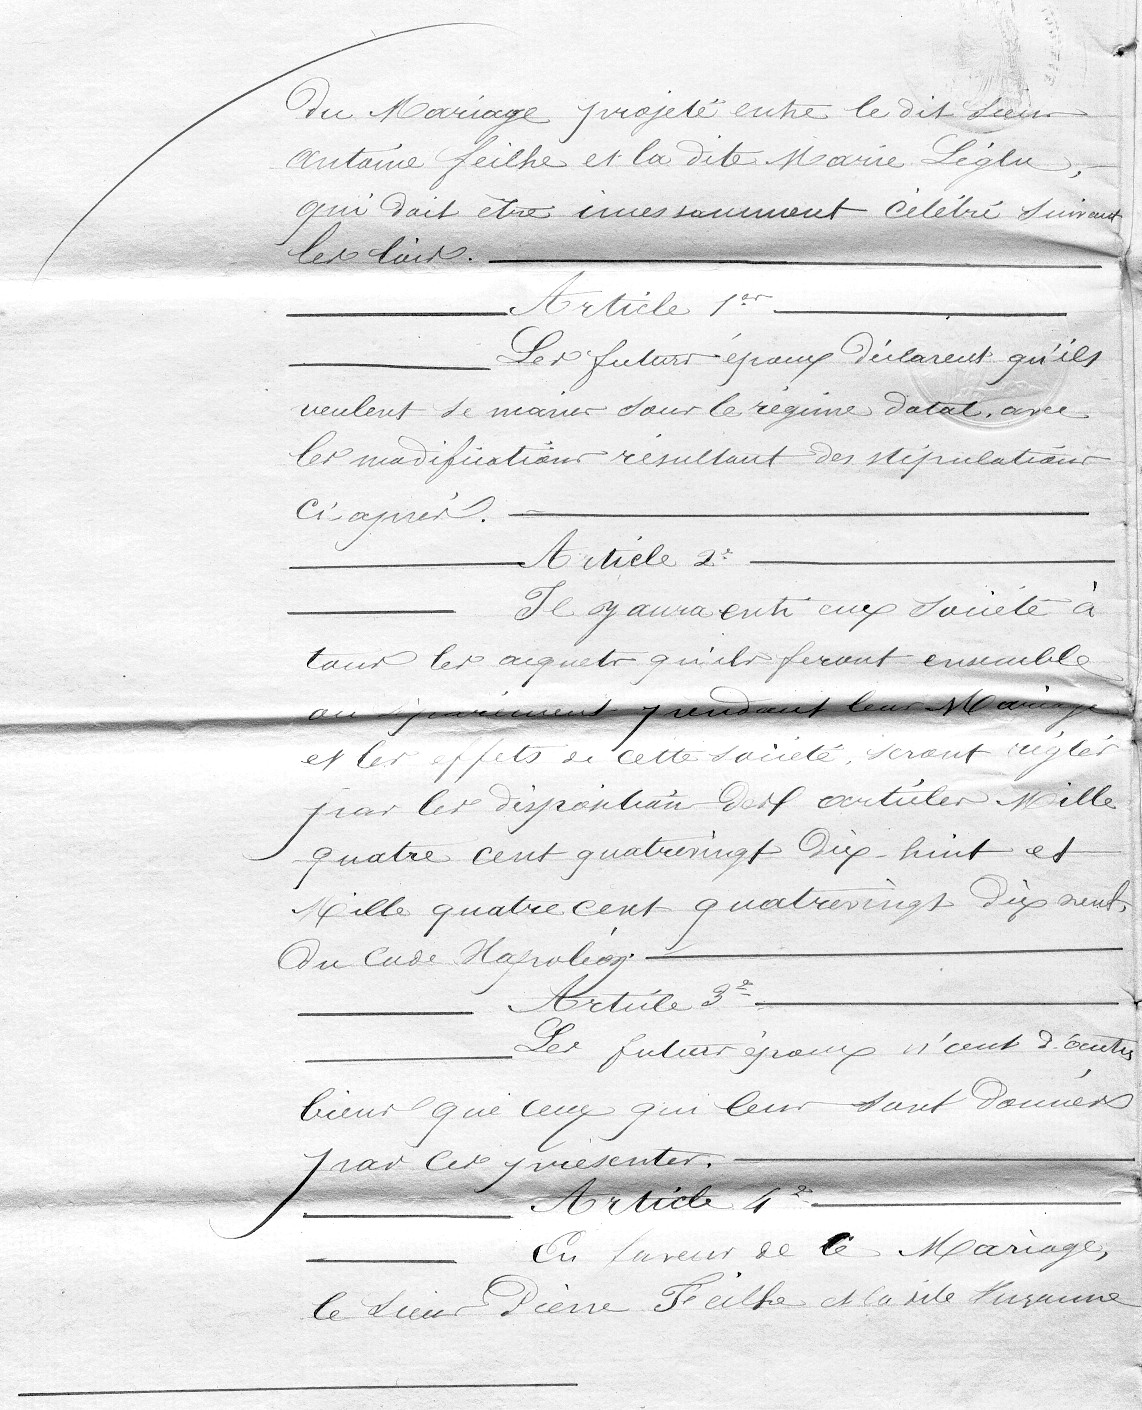 Du Mariage projeté entre le dit Sieur
Antoine Feilhe et la dite Marie Léglu,
qui doit être incessamment célébré suivant
les lois.
Article 1er
Les futurs époux déclarent qu'ils
veulent se marier sous le régime dotal, avec
les modifications résultant des stipulations
ci après.
Article 2e
Il y aura entr'eux société à
tous les acquets qu'ils feront ensemble
ou séparément pendant leur Mariage
et les effets de cette société, seront réglés
par les disposition des articles Mille
quatre cent quatrevingt dix-huit et
Mille quatre cent quatrevingt dix neuf,
du Code Napoléon.
Article 3e
Les futurs époux n'ont d'autres
biens que ceux qui leur sont donnés
par ces présentes.
Article 4e
En faveur de ce Mariage,
le Sieur Pierre Feilhe et la dite Suzanne